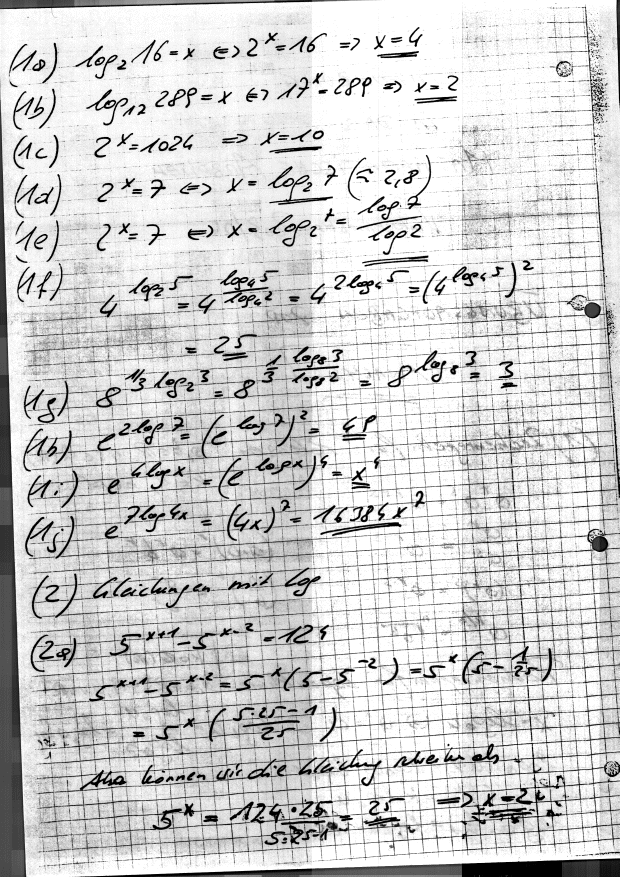 (1a) log₂16=x ⇔ 2^x=16 ⇒ x=4
(1b) log₁₇289=x ⇔ 17^x=289 ⇒ x=2
(1c) 2^x=1024 ⇒ x=10
(1d) 2^x=7 ⇔ x=log₂7 (≈2,8)
(1e) 2^x=7 ⇔ x=log₂7=log7/log2
(1f) 4^(log₂5)=4^(log₄5/log₄2)=4^(2log₄5)=(4^(log₄5))²
=25
(1g) 8^(1/3 log₂3)=8^(1/3 log₈3/log₈2)=8^(log₈3)=3
(1h) e^(2log7)=(e^(log7))²=49
(1i) e^(4logx)=(e^(logx))⁴=x⁴
(1j) e^(7log4x)=(4x)⁷=16384x⁷
(2) Gleichungen mit log
(2a) 5^(x+1)-5^(x-2)=124
5^(x+1)-5^(x-2)=5^x(5-5^(-2))=5^x(5-1/25)
=5^x((5·25-1)/25)
Also können wir die Gleichung schreiben als
5^x=(124·25)/(5·25-1)=25 ⇒ x=2